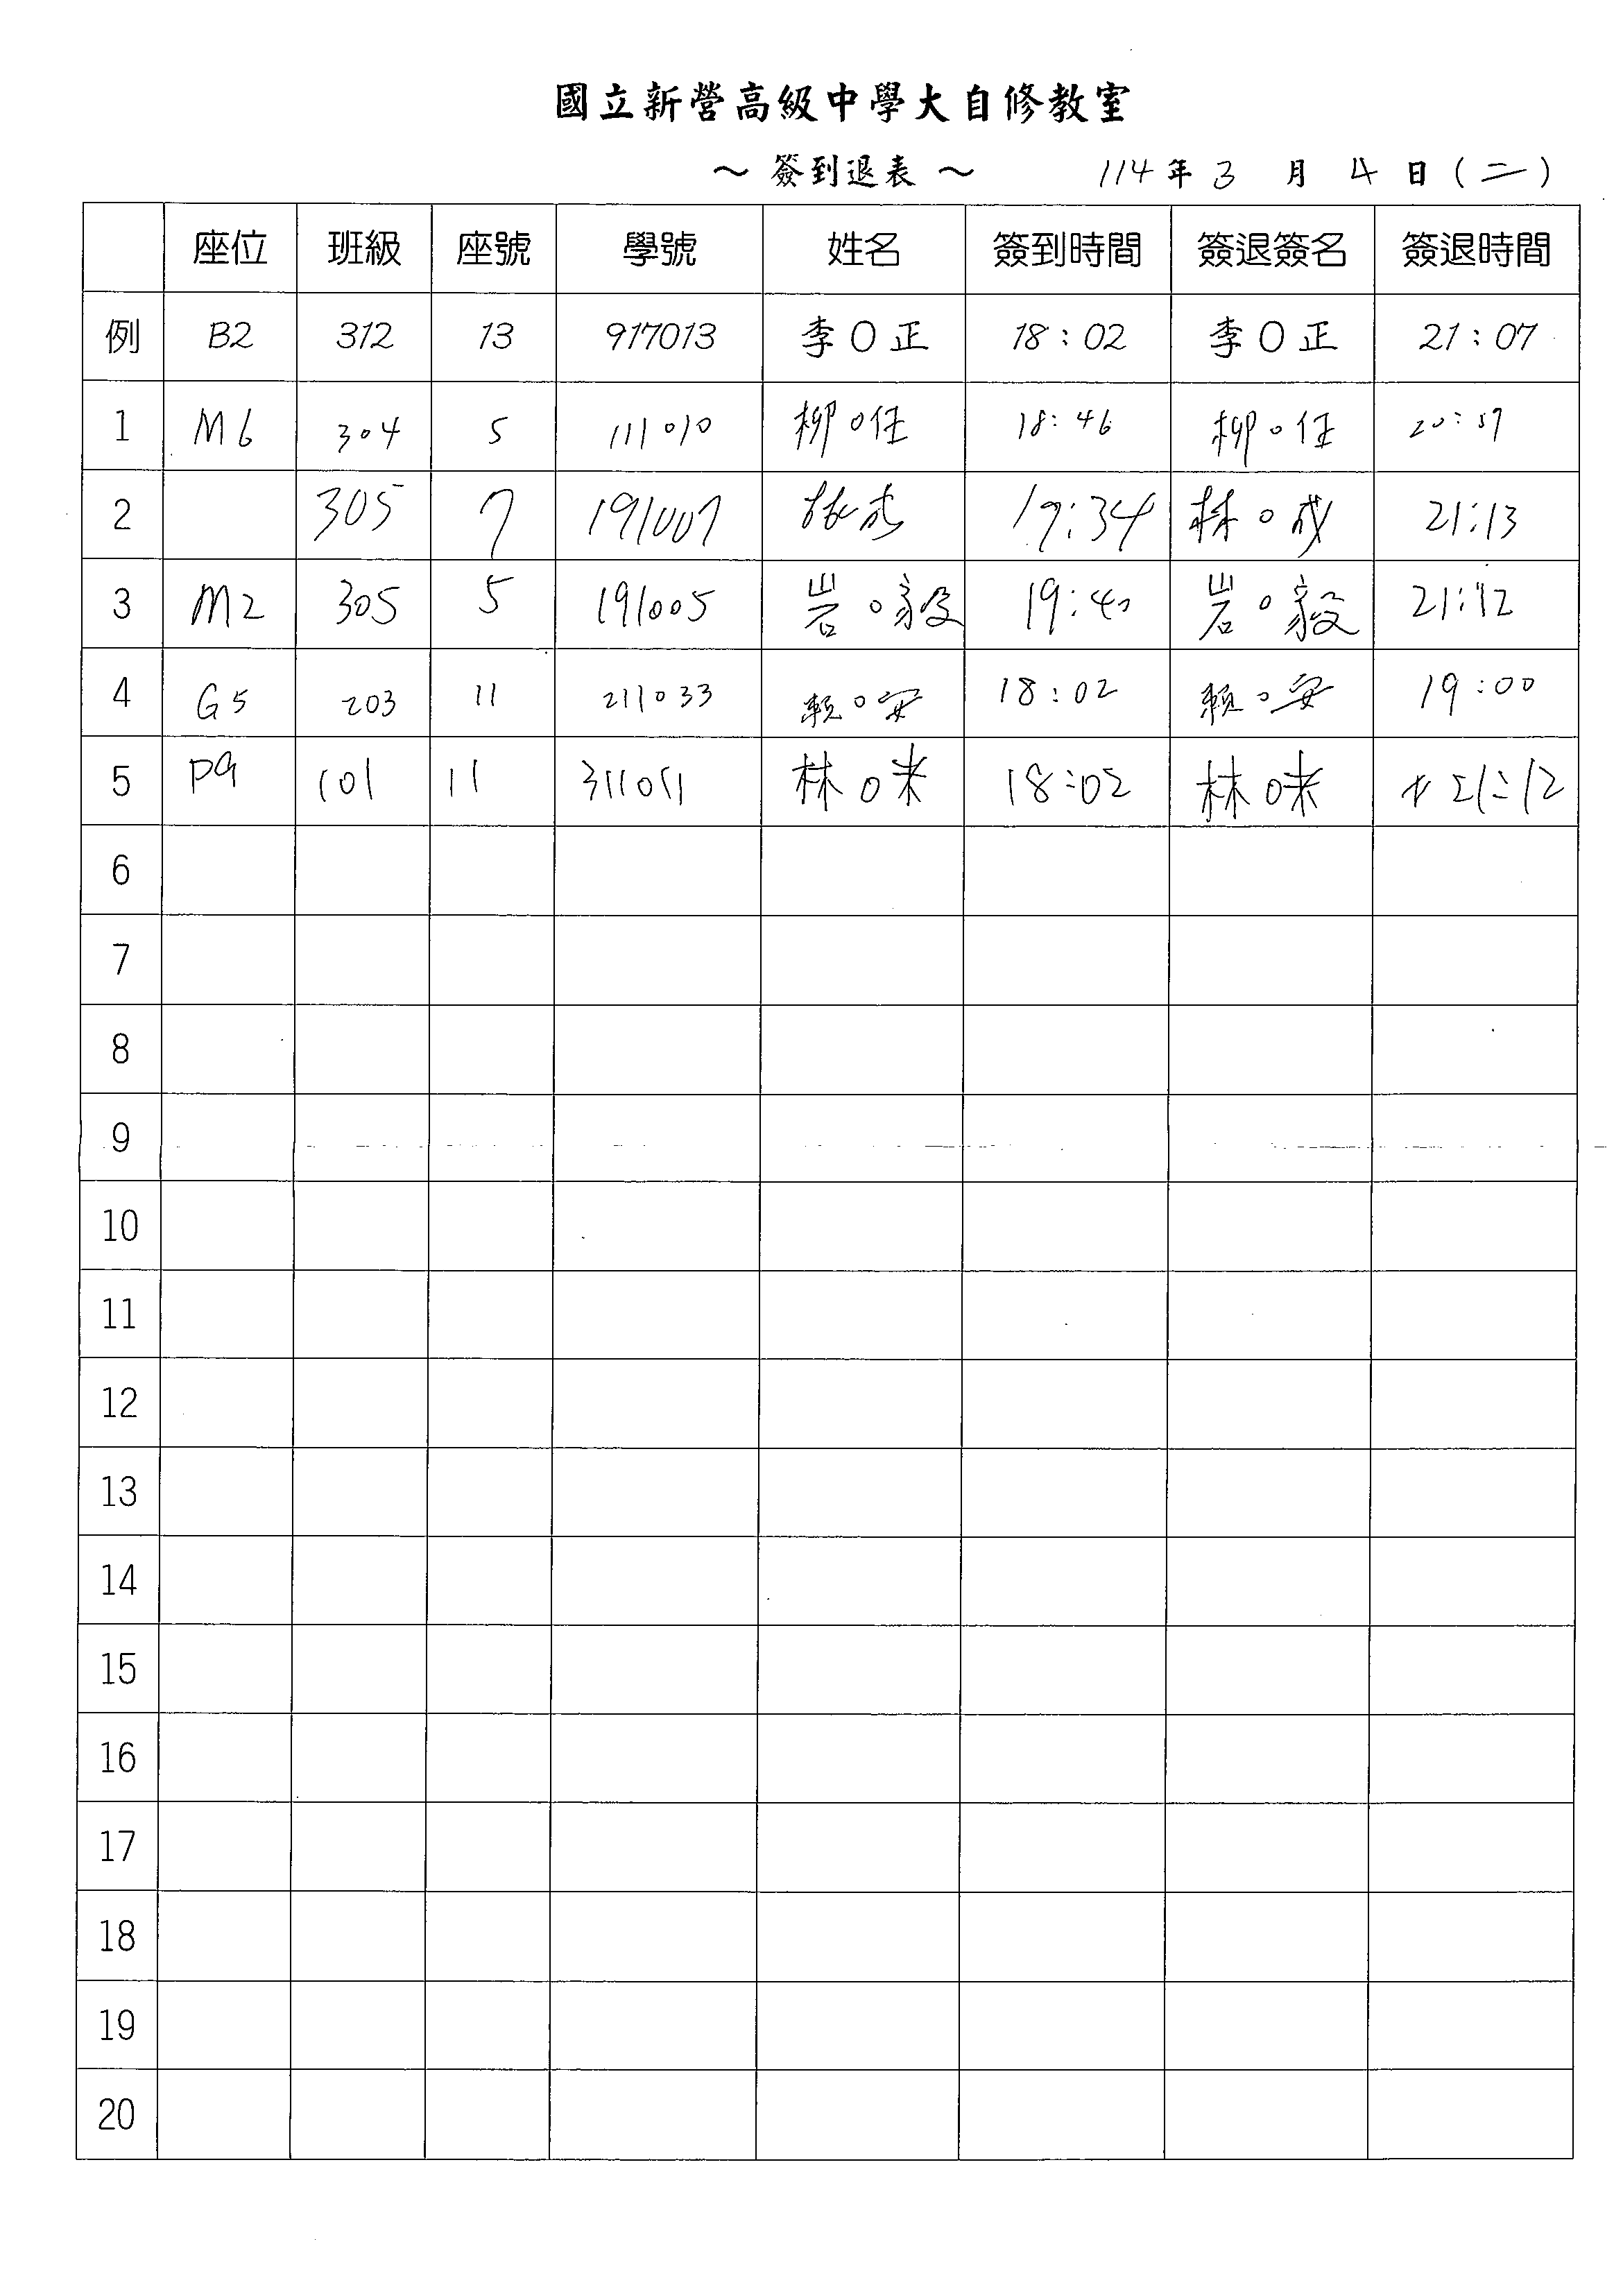 國立新營高級中學大自修教室
～ 簽到退表 ～ 114年 3 月 4 日(二)
座位 班級 座號 學號 姓名 簽到時間 簽退簽名 簽退時間
例 B2 312 13 917013 李O正 18：02 李O正 21：07
1 M6 304 5 111010 柳○任 18:46 柳○任 20:59
2 305 7 191007 19:34 林○成 21:13
3 M2 305 5 191005 岩○毅 19:40 岩○毅 21:12
4 G5 203 11 211033 賴○安 18:02 賴○安 19:00
5 P9 101 11 311011 林○ 18:02 林○ 21:12
6
7
8
9
10
11
12
13
14
15
16
17
18
19
20